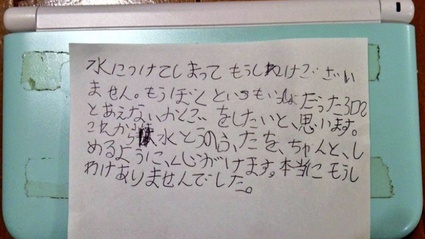 水につけてしまってもうしわけございい
ません。もうぼくといつもいっしょだった3DS
とあえないかくごをしたいと、思います。
これから水とうのふたを、ちゃんと、し
めるように、心がけます。本当にもうし
わけありませんでした。